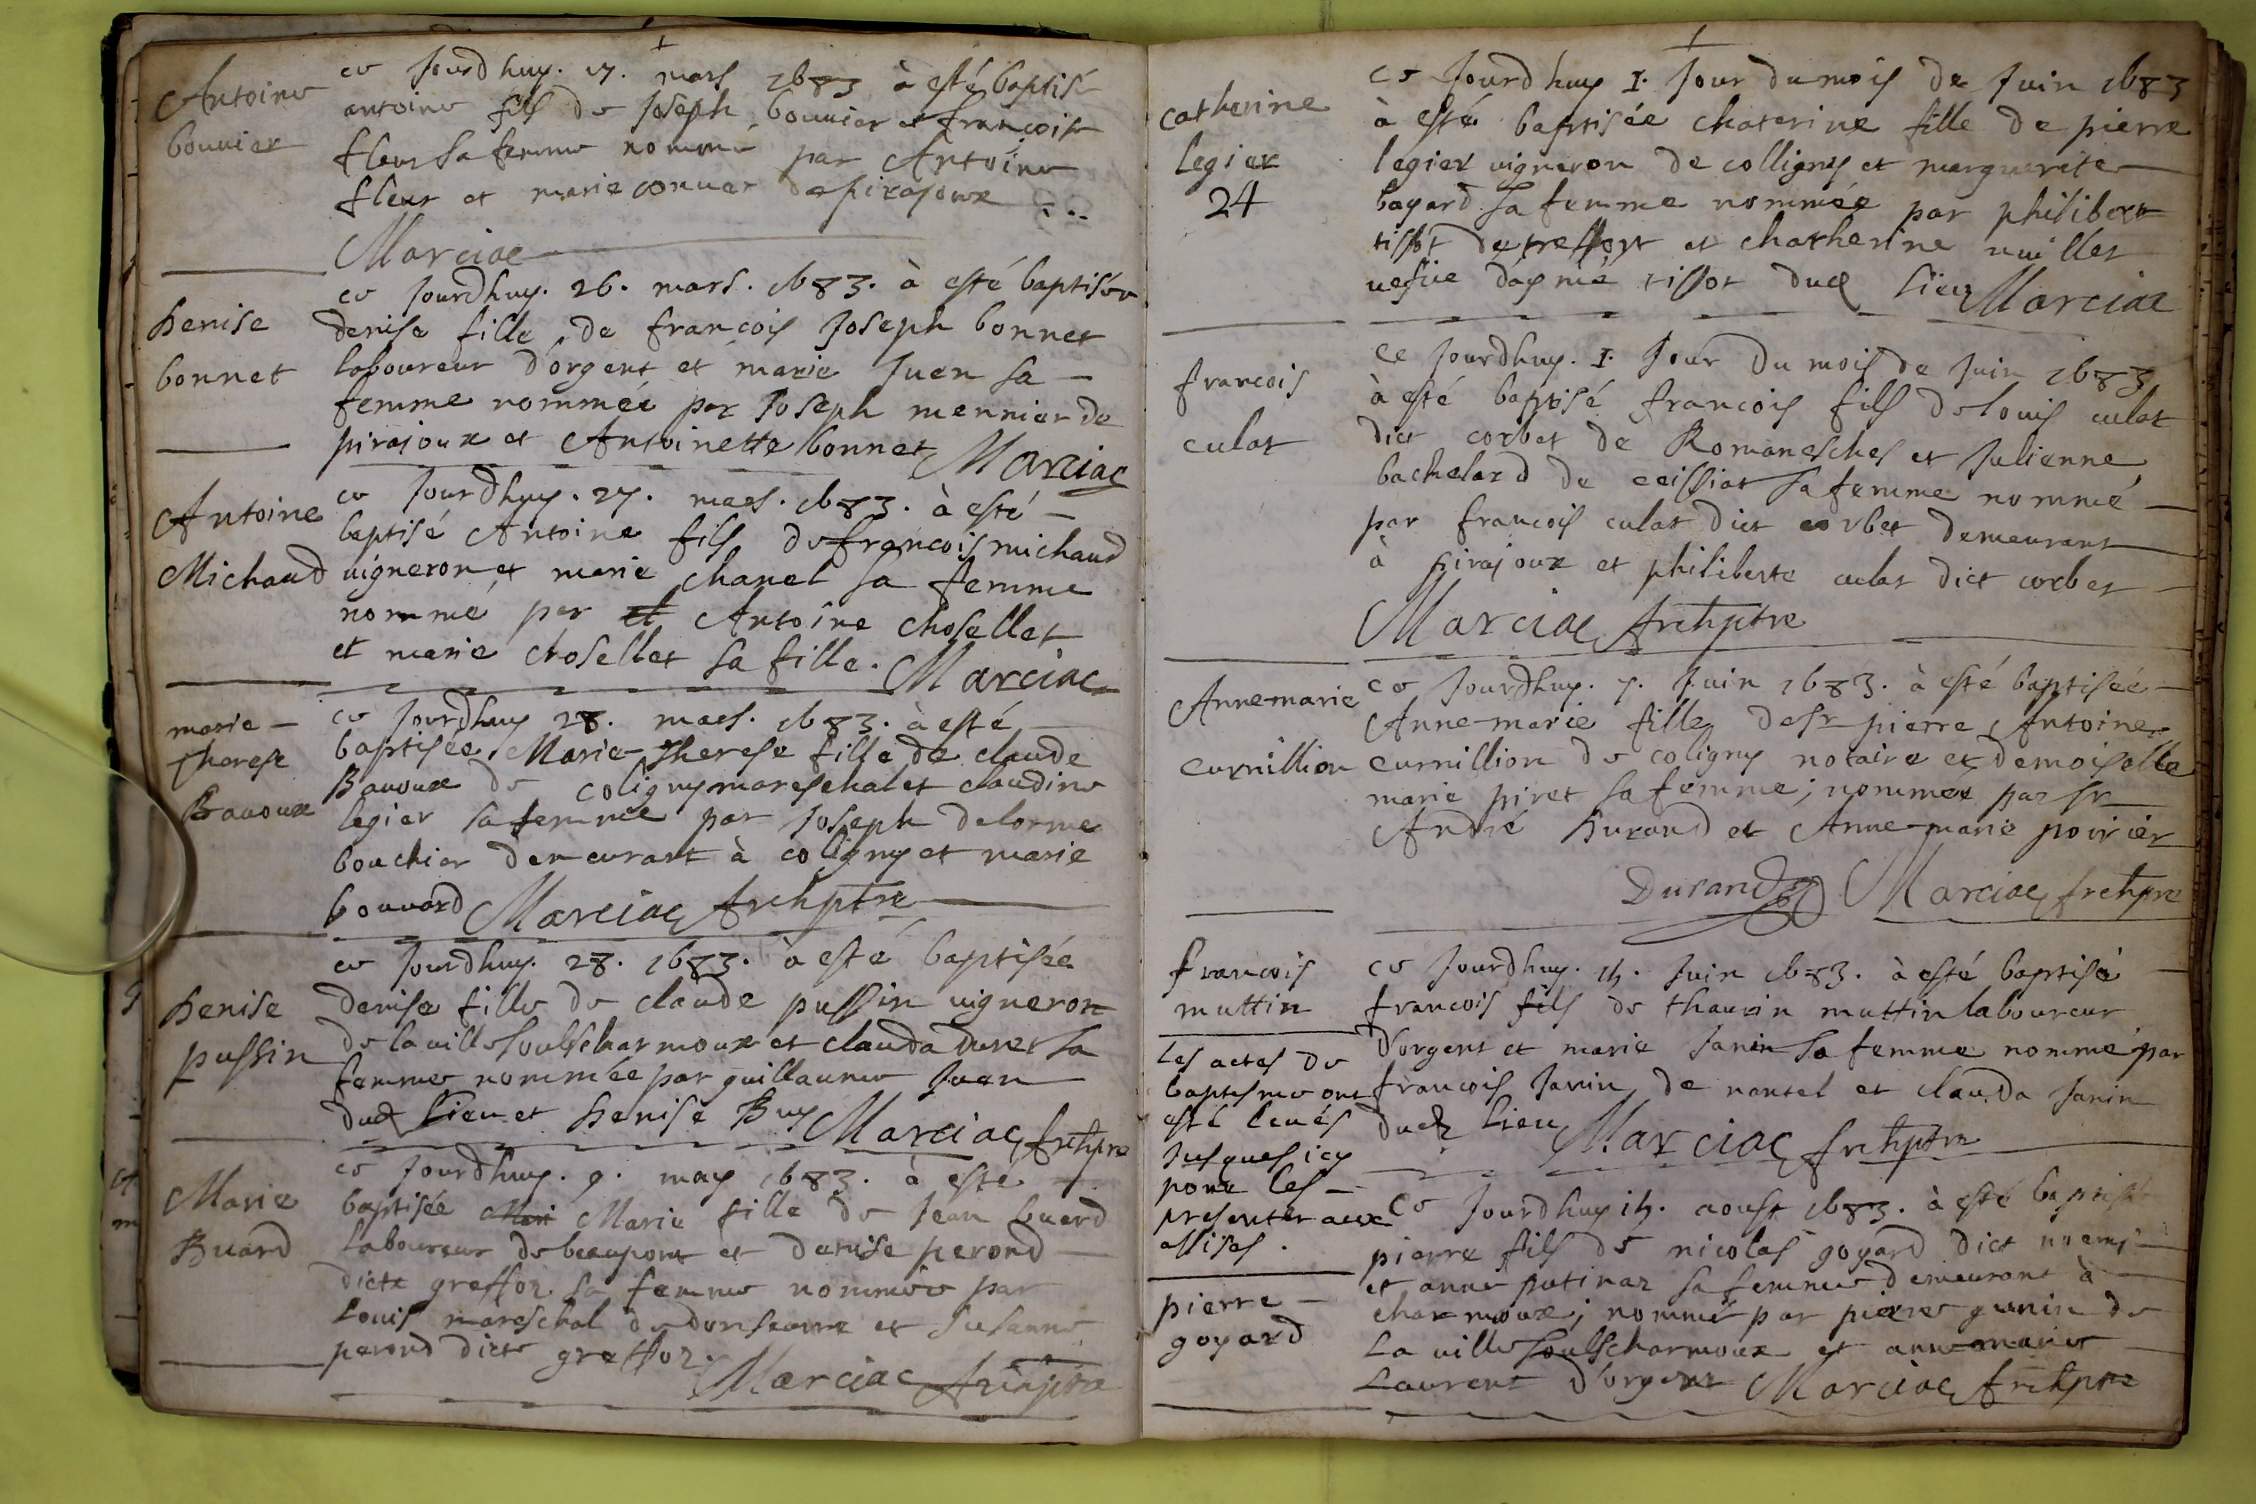 Antoine
bouvier
ce Jourdhuy. 17. mars 1683 à esté baptisé
antoine fils de Joseph bouvier et francoise
fleur sa femme nommé par Antoine
fleur et marie convert de pirajoux
Marciac
Denise
bonnet
ce Jourdhuy. 26. mars. 1683. à esté baptisée
denise fille de francois Joseph bonnet
laboureur d'orgent et marie Juen sa
femme nommée par Joseph mennier de
pirajoux et Antoinette bonnet Marciac
Antoine
Michaud
ce Jourdhuy. 27. mars. 1683. à esté
baptisé Antoine fils de francois michaud
vigneron et marie chanel sa femme
nommé par Antoine chosellet
et marie chosellet sa fille. Marciac
marie
therese
Bavoux
ce Jourdhuy 28. mars. 1683. à esté
baptisée Marie-Therese fille de claude
Bavoux de coligny mareschal et claudine
legier sa femme par Joseph delorme
bouchier demeurant à coligny et marie
bouvard Marciac Archptre
Denise
pussin
ce Jourdhuy. 28. 1683. à esté baptisée
denise fille de claude pussin vigneron
de la ville soulscharmoux et clauda duret sa
femme nommée par guillaume Juen
dud lieu et Denise Buy Marciac Archpre
Marie
Buard
ce Jourdhuy. 9. may 1683. à esté
baptisée Mari Marie fille de Jean buard
laboureur de beaupont et denise perond
dicte greffoz sa femme nommée par
Louis mareschal de domseurre et Susanne
perond dicte greffoz.
Marciac Archptre
catherine
legier
24
ce Jourdhuy I. Jour du mois de Juin 1683
à esté baptisée chaterine fille de pierre
legier vigneron de colligny et marguerite
bayard sa femme nommée par philibert
tissot de treffort et chatherine nuillet
vesue daymé tissot dud lieu Marciac
francois
culat
ce Jourdhuy. I. Jour du mois de Juin 1683
à esté baptisé francois fils de louis culat
dict corbet de Romanesches et Julienne
bachelard de ceissiat sa femme nommé
par francois culat dict corbet demeurant
à pirajoux et philiberte culat dict corbet
Marciac Archptre
Anne-marie
Curnillion
ce Jourdhuy. 7. Juin 1683. à esté baptisée
Anne-marie fille de sr pierre Antoine
curnillion de coligny notaire et demoiselle
marie piret sa femme; nommée par sr
André Durand et Anne-marie poirier
Durand Marciac Archpre
francois
muttin
ce Jourdhuy. 14. Juin 1683. à esté baptisé
francois fils de thaurin muttin laboureur
d'orgent et marie Janin sa femme nommé par
francois Janin de nantel et clauda Janin
dud lieu Marciac Archptre
Les actes de
baptesme ont
esté leués
Jusques icy
pour les
presenter aux
assises.
pierre
goyard
Ce Jourdhuy 14. aoust 1683. à esté baptisé
pierre fils de nicolas goyard dict
et anne putinaz sa femme demeurant à
charmoux; nommé par pierre gunin de
La ville soulscharmoux et anne-marie
Laurent d'orgent Marciac Archptre